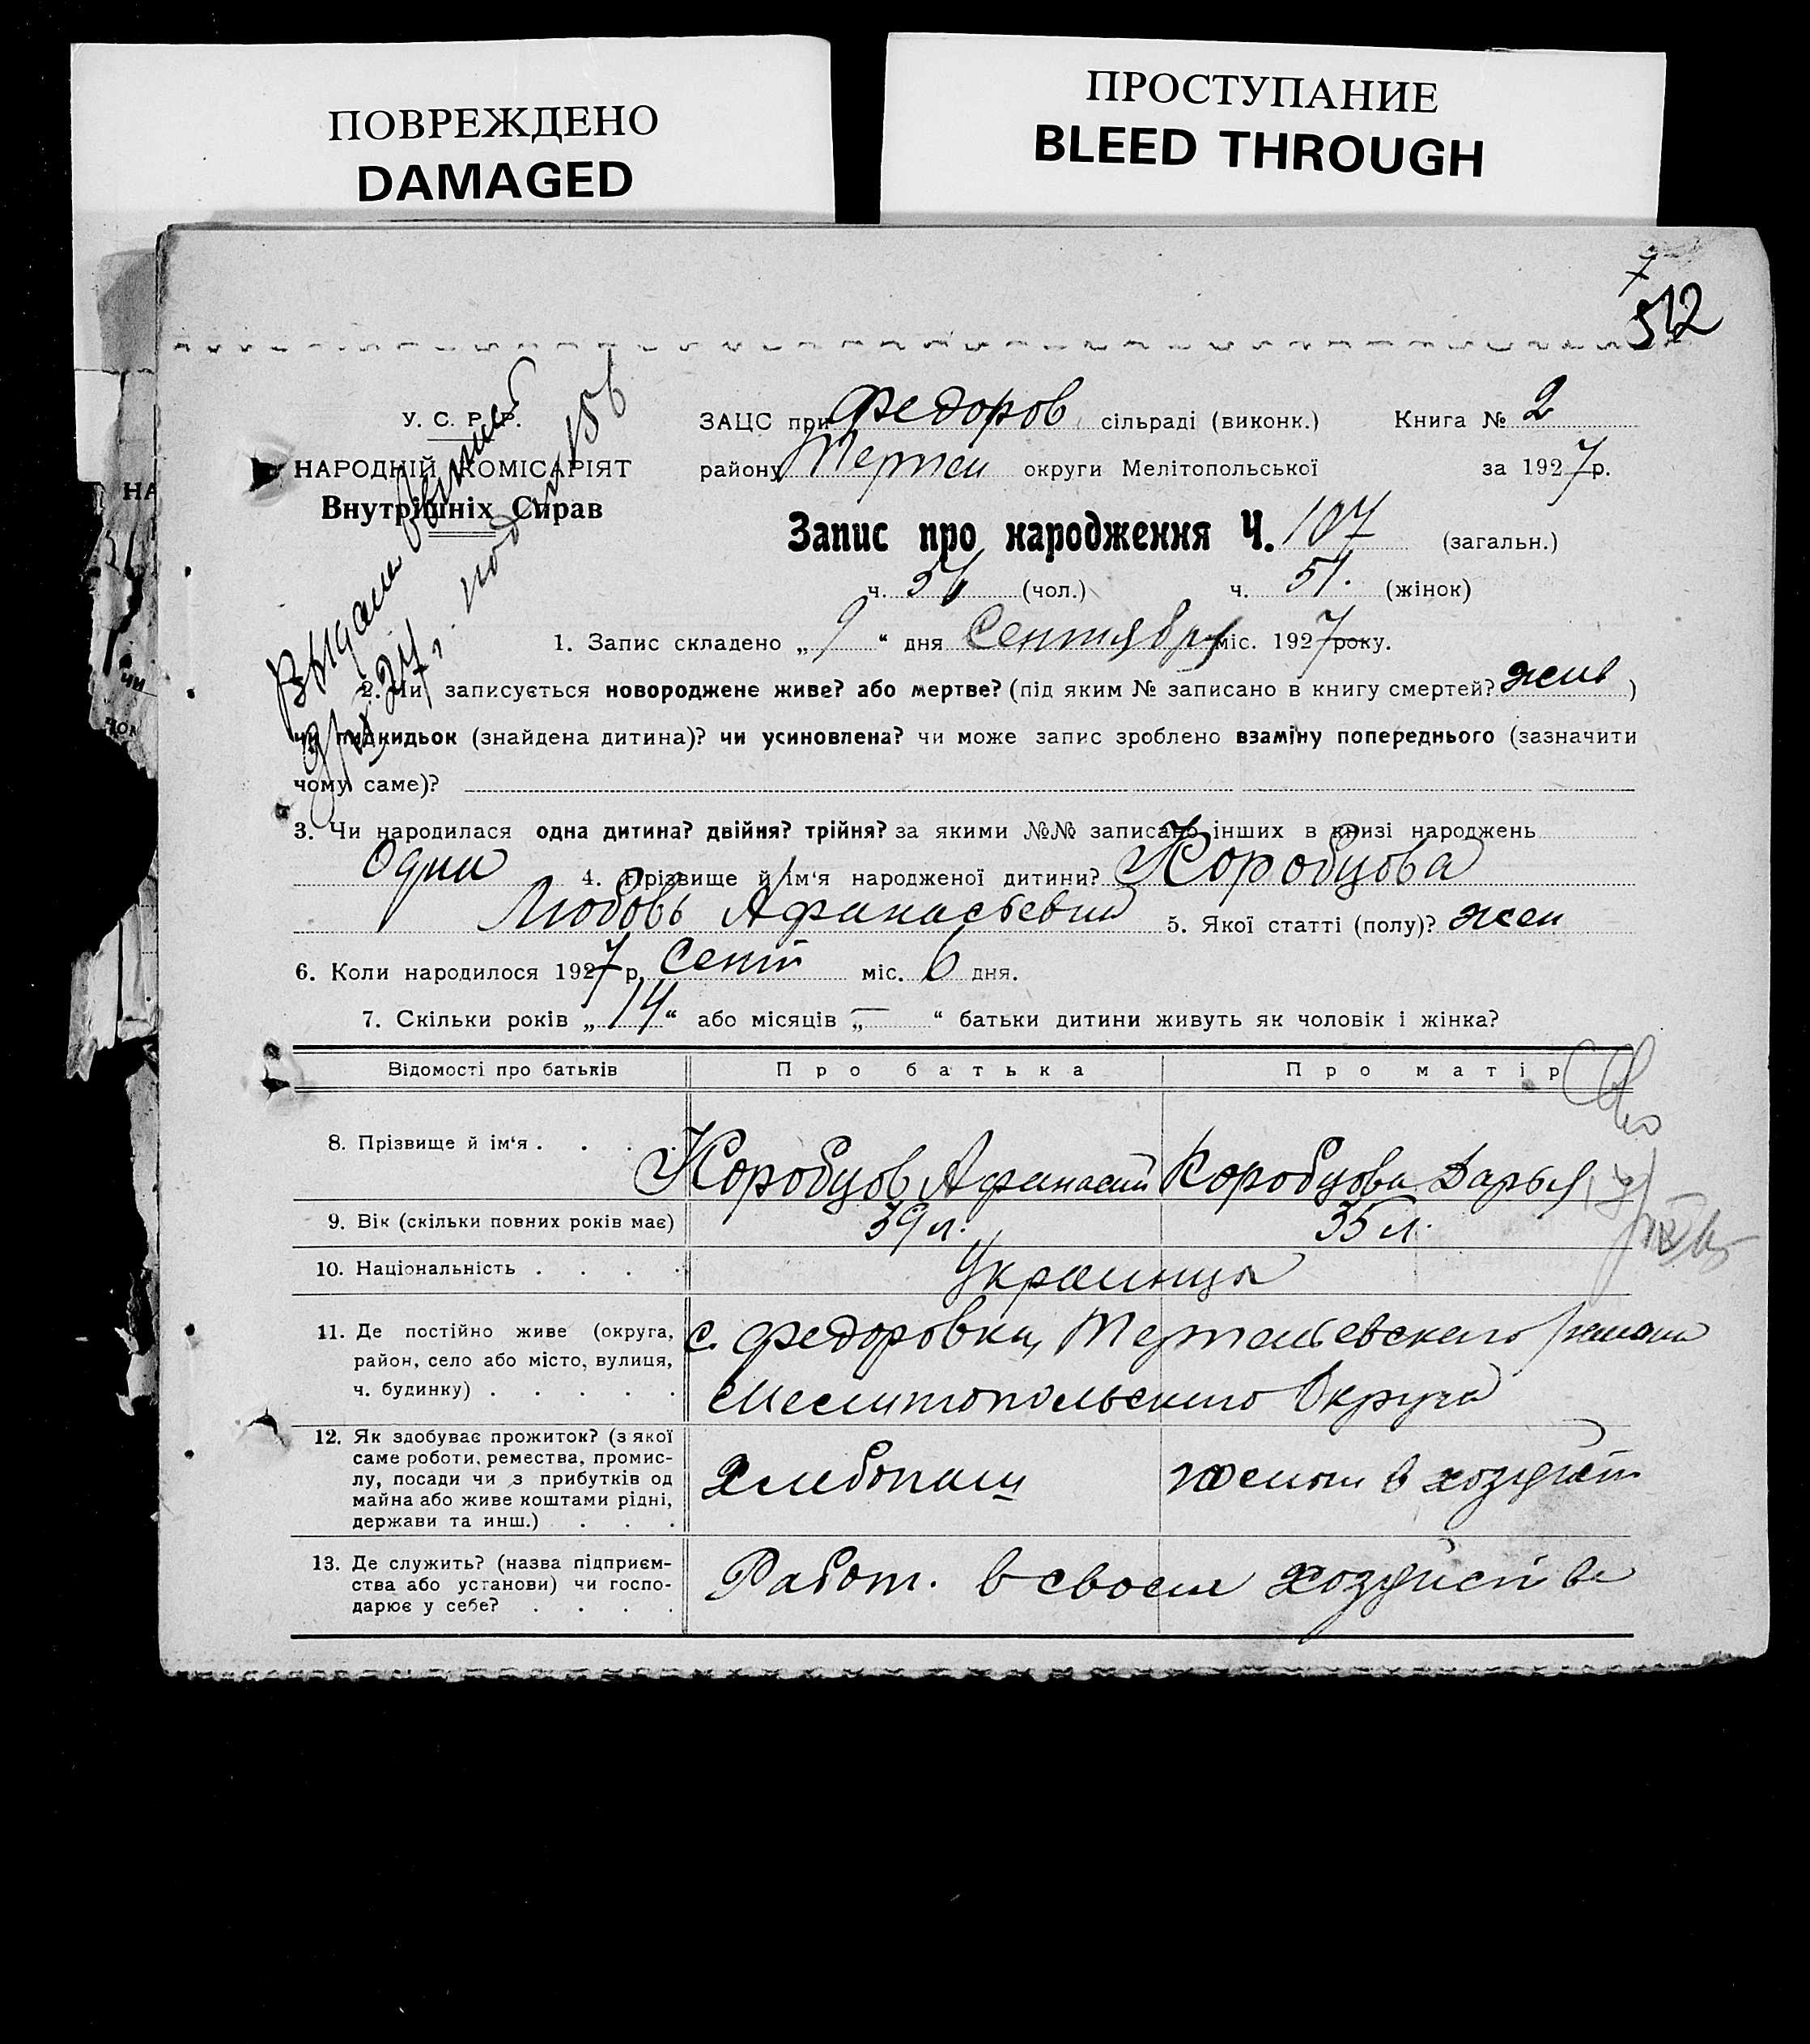 ПОВРЕЖДЕНО
DAMAGED
ПРОСТУПАНИЕ
BLEED THROUGH
7
512
У. С. Р. Р.
НАРОДНІЙ КОМІСАРІЯТ
Внутрішніх Справ
ЗАЦС при Федоров сільраді (виконк.) Книга № 2
району Терпен округи Мелітопольської за 1927 р.
Запис про народження Ч. 107 (загальн.)
ч. 56 (чол.) ч. 51. (жінок)
1. Запис складено „ 9 “ дня Сентября міс. 1927 року.
2. Чи записується новороджене живе? або мертве? (під яким № записано в книгу смертей? жив )
чи підкидьок (знайдена дитина)? чи усиновлена? чи може запис зроблено взаміну попереднього (зазначити
чому саме)?
3. Чи народилася одна дитина? двійня? трійня? за якими №№ записано інших в книзі народжень
Одна 4. Прізвище й ім‘я народженої дитини? Коробцова
Любовь Афанасьевна 5. Якої статті (полу)? жен
6. Коли народилося 1927 р. Сент міс. 6 дня.
7. Скільки років „ 14 “ або місяців „ — “ батьки дитини живуть як чоловік і жінка?
Відомості про батьків Про батька Про матір
8. Прізвище й ім‘я . . . . Коробцов Афанасий Коробцова Дарья
9. Вік (скільки повних років має) 39 л. 35 л.
10. Національність . . . . Украинцы
11. Де постійно живе (округа,
район, село або місто, вулиця,
ч. будинку) . . . . .
с. Федоровка, Терпеньевского района
Мелитопольского Округа
12. Як здобуває прожиток? (з якої
саме роботи, ремества, промис-
лу, посади чи з прибутків од
майна або живе коштами рідні,
держави та инш.) . . .
Хлебопаш в хозяйст
13. Де служить? (назва підприєм-
ства або установи) чи госпо-
дарює у себе? . . . .
Работ. в своем хозяйстве